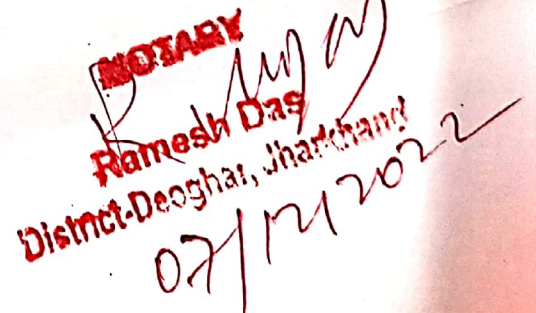 NOTARY
Ramesh Das
District-Deoghar, Jharkhand
07/12/2022